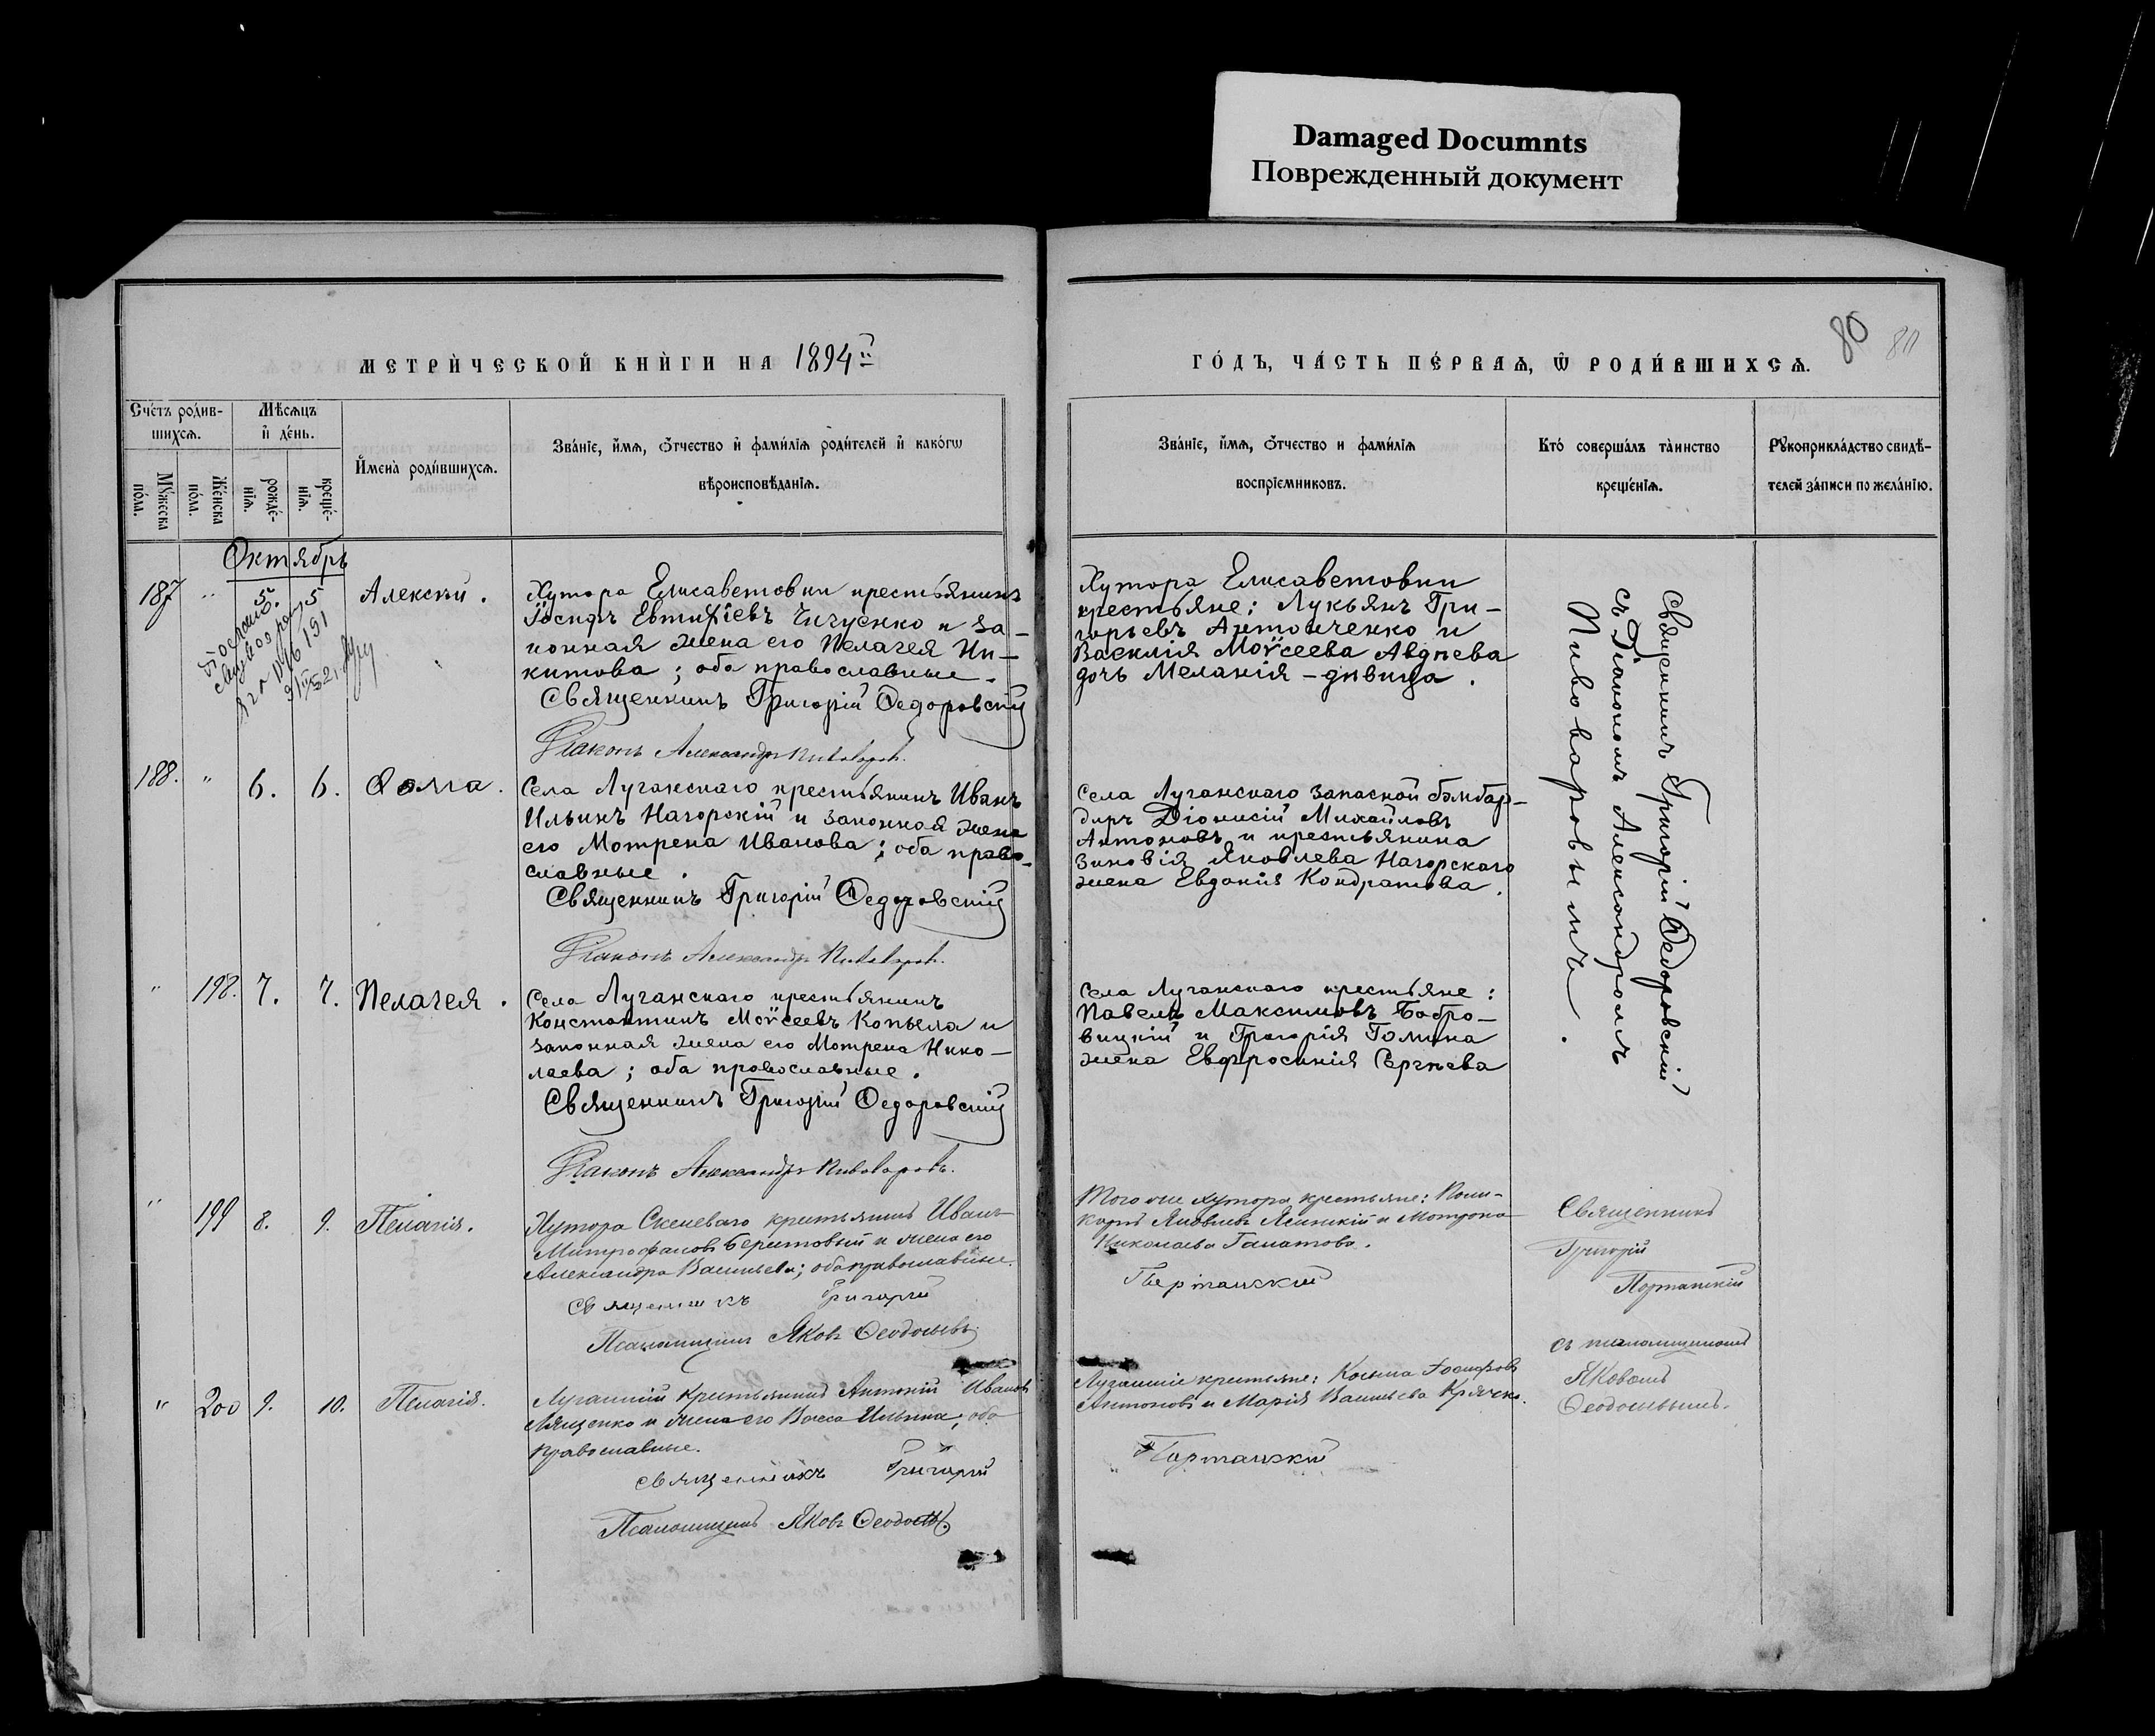 Damaged Documnts
Поврежденный документ
МЕТРИ́ЧЕСКОЙ КНИ́ГИ НА 1894й
ГО́ДЪ, ЧА́СТЬ ПЕ́РВАѦ, Ѿ РОДИ́ВШИХСѦ.
80
80
Сче́тъ роди́в-
шихсѧ.
Мѣ́сѧцъ
и҆ де́нь.
Му́жеска
по́ла.
Же́нска
по́ла.
рожде́-
нїѧ.
креще́-
нїѧ.
И҆мена̀ роди́вшихсѧ.
Зва́нїе, и҆́мѧ, ѻ҆́тчество и҆ фами́лїѧ роди́телей и҆ како́гѡ
вѣроисповѣ́данїѧ.
Зва́нїе, и҆́мѧ, ѻ҆́тчество и фами́лїѧ
воспрїе́мниковъ.
Кто́ соверша́лъ та̀инство
креще́нїѧ.
Рꙋкоприкла́дство свидѣ́-
телей за́писи по жела́нїю.
Октябрь
187 " 5. 5 Алексѣй.
Хутора Елисаветовки крестьянинъ
Іосифъ Евтихіевъ Чичуенко и за-
конная жена его Пелагея Ни-
китова; оба православные.
Священникъ Григорій Ѳедоровскій
Діаконъ Александръ Пивоваровъ.
Хутора Елисаветовки
крестьяне: Лукьянъ Гри-
горьевъ Антонченко и
Василія Моѵсеева Авдѣева
дочь Меланія - дѣвица.
Священникъ Григорій Ѳедоровскій
съ Діакономъ Александромъ
Пивоваровымъ.
188. " 6. 6. Ѳома.
Села Луганскаго крестьянинъ Иванъ
Ильинъ Нагорскій и законная жена
его Мотрена Иванова; оба право-
славные.
Священникъ Григорій Ѳедоровскій
Діаконъ Александръ Пивоваровъ.
Села Луганскаго запасной бомбар-
диръ Діонисій Михайловъ
Антоновъ и крестьянина
Зиновія Яковлева Нагорскаго
жена Евдокія Кондратова.
" 198. 7. 7. Пелагея.
Села Луганскаго крестьянинъ
Константинъ Моѵсеевъ Копыла и
законная жена его Мотрена Нико-
лаева; оба православные.
Священникъ Григорій Ѳедоровскій
Діаконъ Александръ Пивоваровъ.
Села Луганскаго крестьяне:
Павелъ Максимовъ Бобро-
вицкій и Григорія Гомина
жена Евфросинія Сергѣева
" 199 8. 9. Пелагія.
Хутора крестьянинъ Иванъ
Митрофановъ Берестовый и жена его
Александра Васильева; оба православные.
Священникъ Григорій
Псаломщикъ Яковъ Ѳеодосьевъ.
Того же хутора крестьяне: Поли-
карпъ Яковлевъ Ясинскій и Мотрона
Николаева Галатова.
Портанскій
Священникъ
Григорій
Портанскій
съ псаломщикомъ
Яковомъ
Ѳеодосьевымъ.
" 200 9. 10. Пелагія.
Луганскій крестьянинъ Антоній Ивановъ
Лященко и жена его Васса Ильина; оба
православные.
Священникъ Григорій
Псаломщикъ Яковъ Ѳеодосьевъ.
Луганскіе крестьяне: Косьма Іосифовъ
Антоновъ и Марія Васильева Крячко.
Портанскій